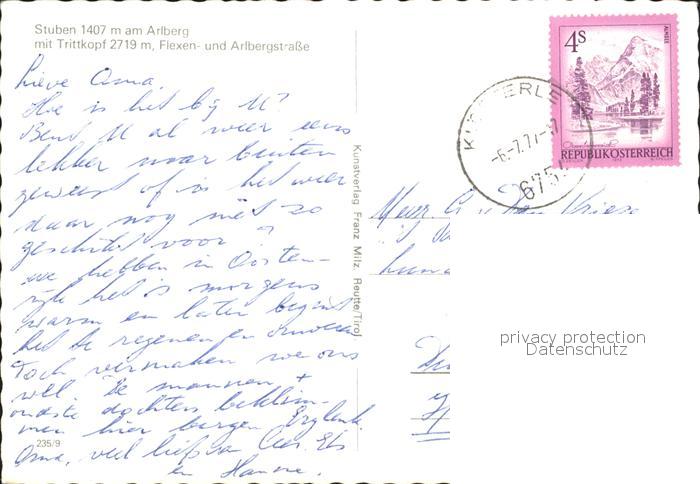 Stuben 1407 m am Arlberg
mit Trittkopf 2719 m, Flexen- und Arlbergstraße
Lieve Oma.
Hoe is het bij U?
Bent U al weer eens
lekker naar buiten
geweest of is het weer
daar nog niet zo
geschikt voor?
we hebben in Oosten-
rijk het is morgens
warm en later begint
het te regenen en onweren
Toch vermaken we ons
wel. De mannen +
oudste dochters beklim-
men hier bergen
Oma, veel liefs van Cees, Els
en Hanne.
235/9
Kunstverlag Franz Milz, Reutte/Tirol
4S
ALMSEE
REPUBLIK ÖSTERREICH
-6.-7.77-
675
Mevr.
privacy protection
Datenschutz